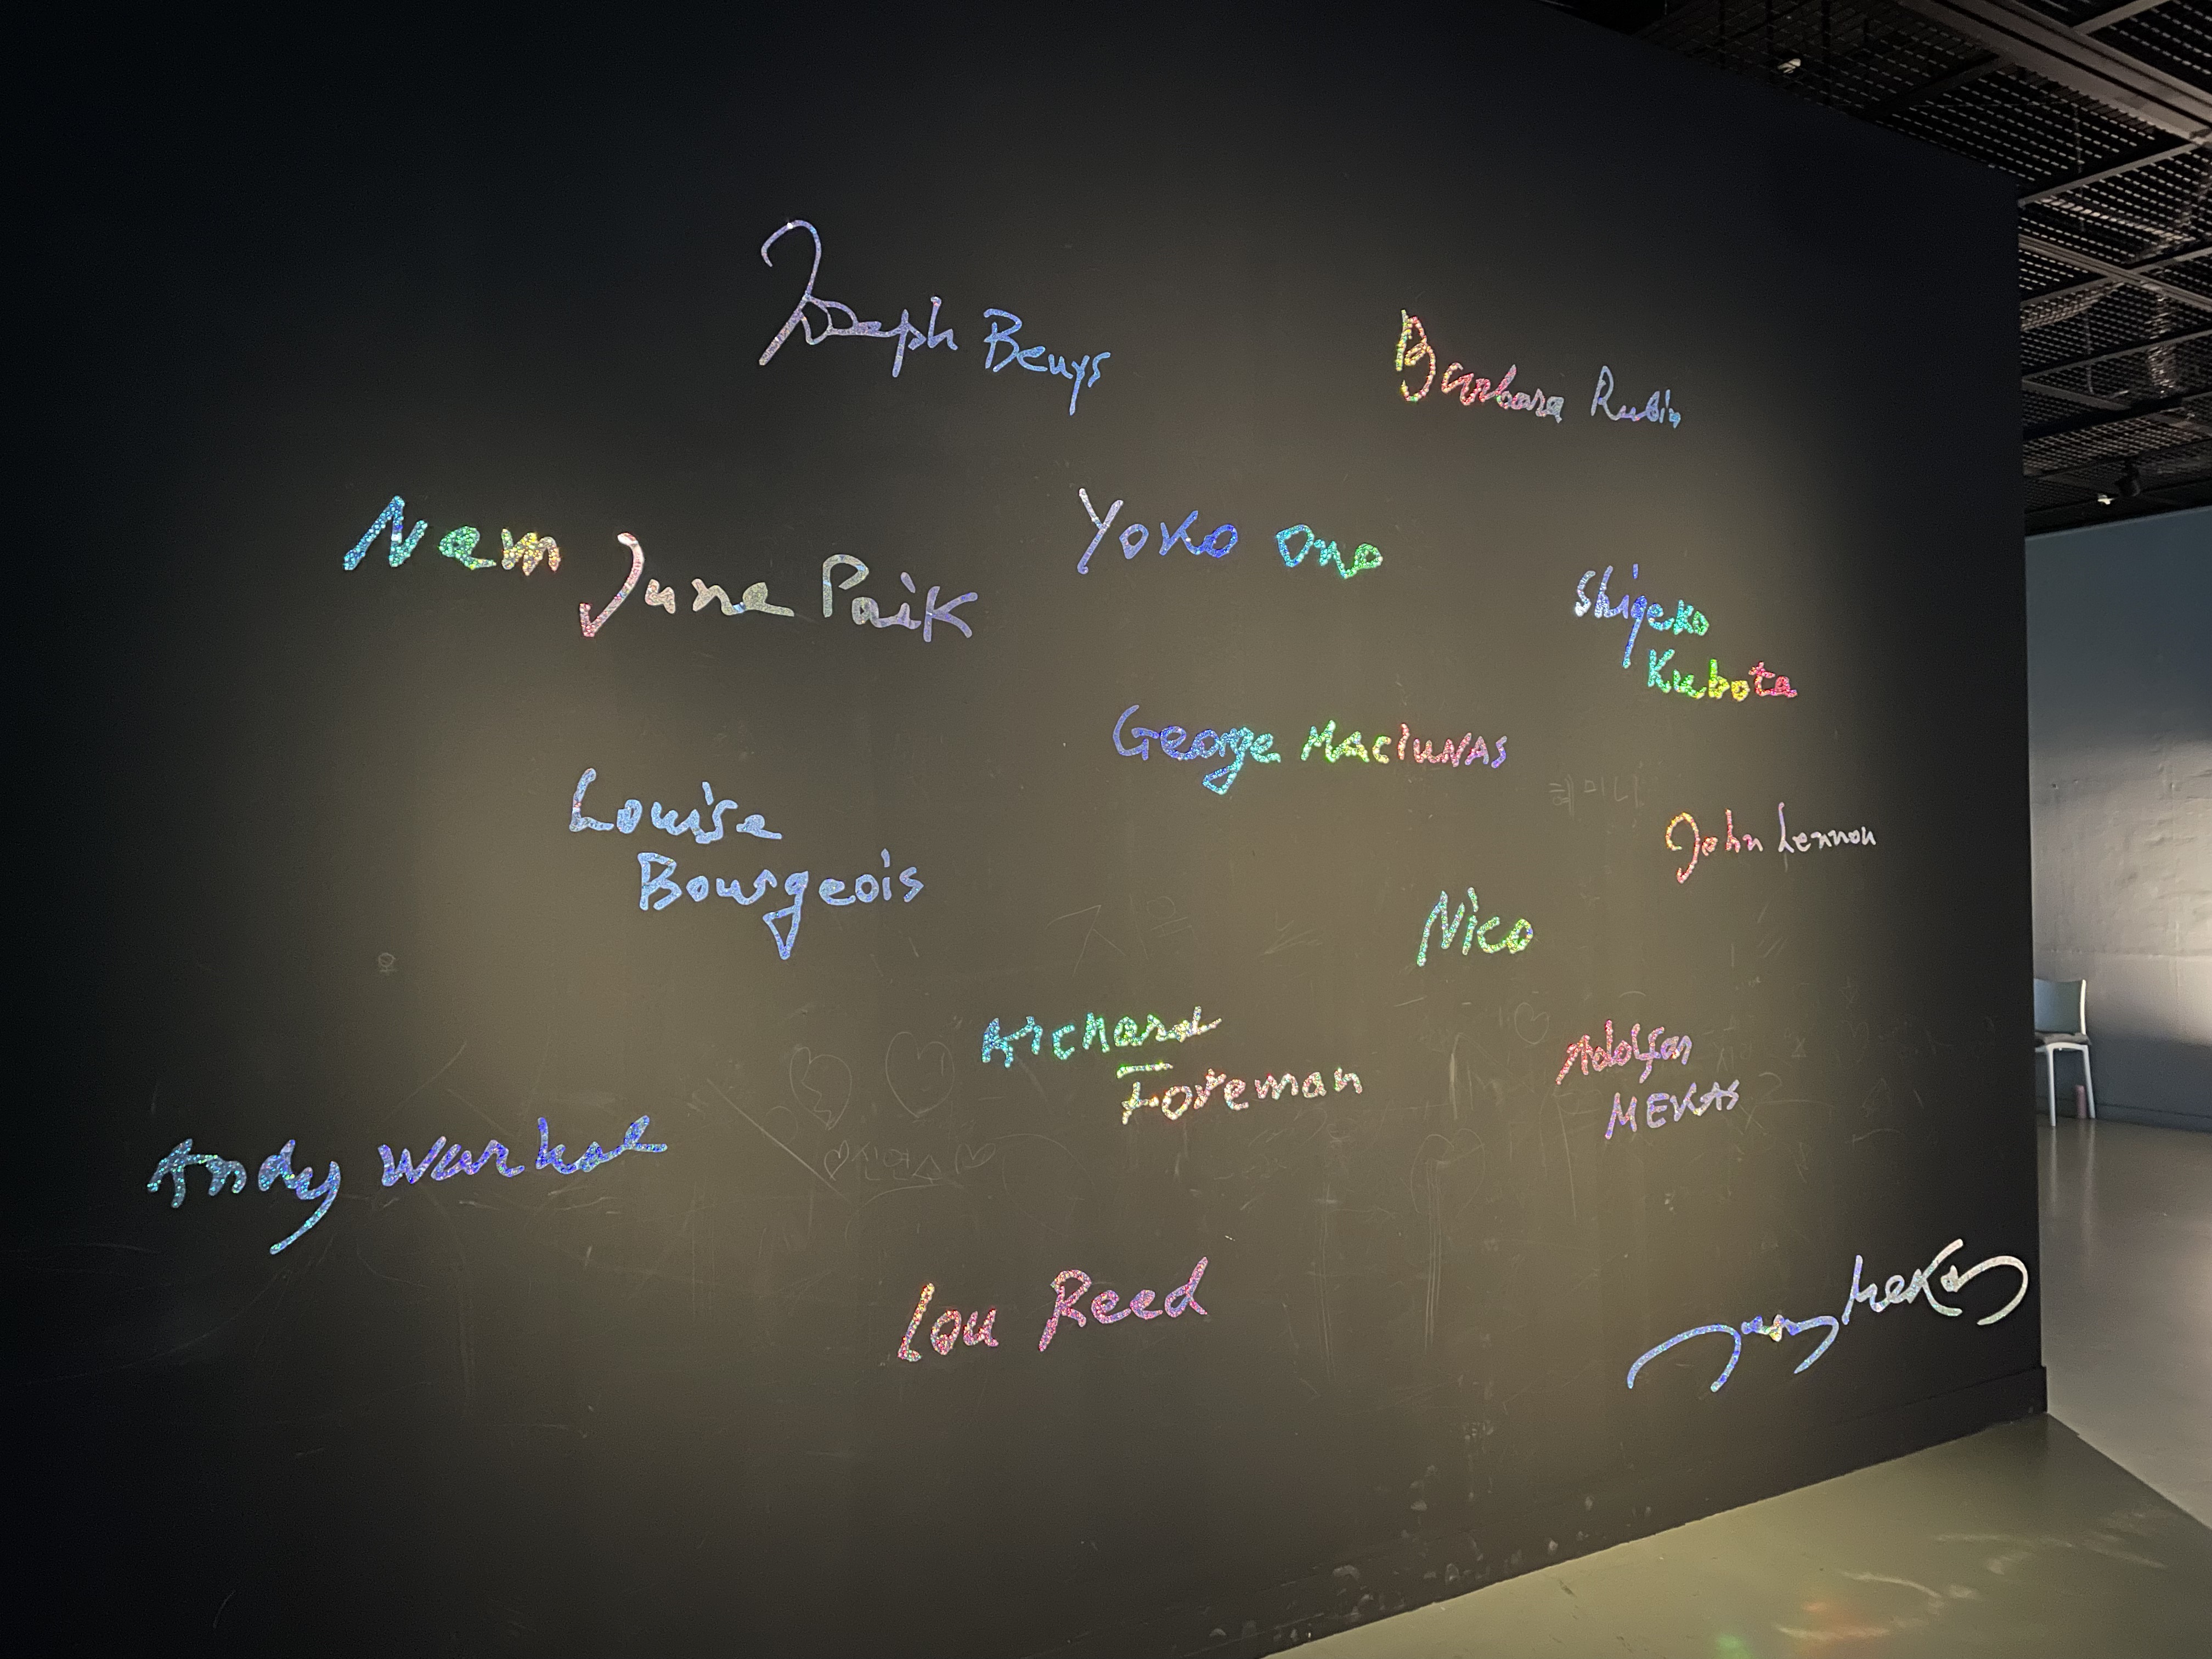 Joseph Beuys
Barbara Rubin
Nam June Paik
Yoko Ono
Shigeko
Kubota
George MACIUNAS
Louise
Bourgeois
John Lennon
Nico
Richard
Foreman
Adolfas
MEKAS
Andy Warhol
Lou Reed
Jonas Mekas